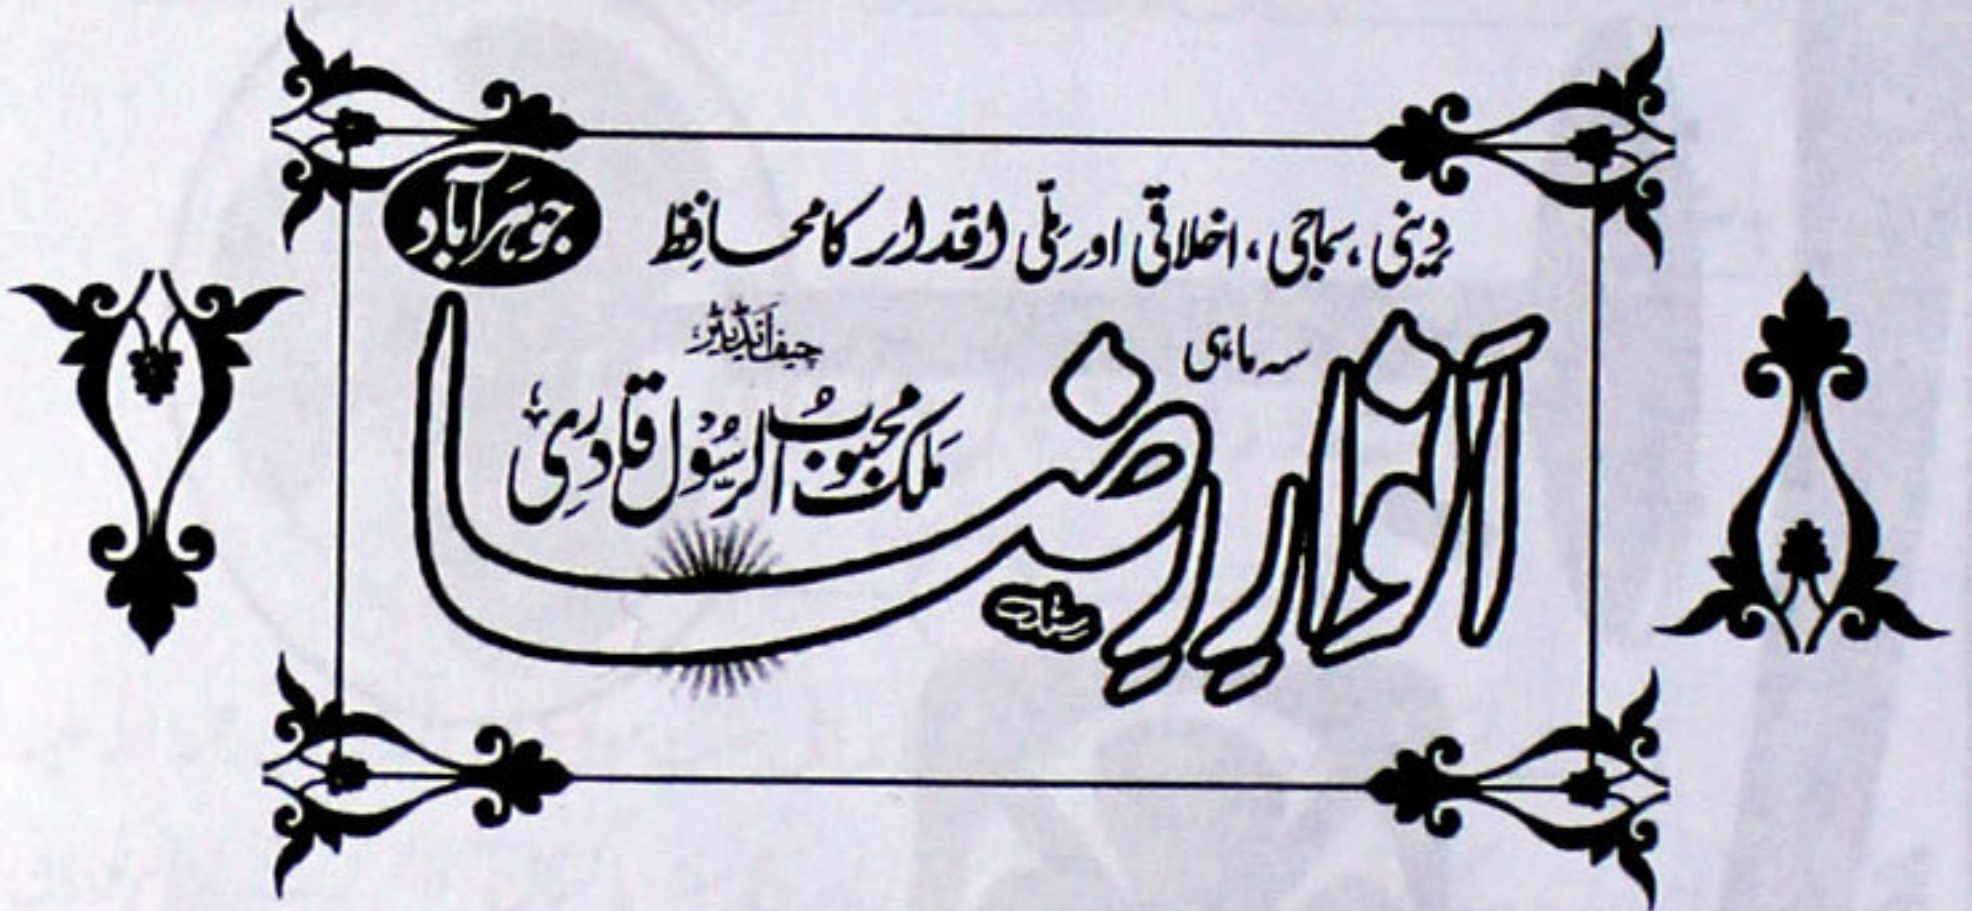 دینی، سماجی، اخلاقی اور ملّی اقدار کا محافظ
جوہَرآباد
سہ ماہی
انوارِ رضا
چیف ایڈیٹر
مَلک محبُوبُ الرسُوْل قادری